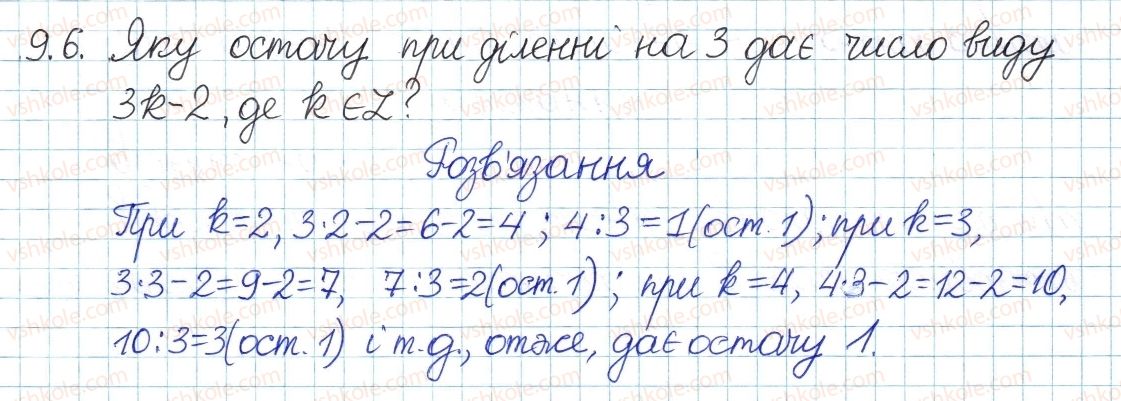 9.6. Яку остачу при діленні на 3 дає число виду
3k-2, де k ∈ Z?
Розв'язання
При k=2, 3·2-2=6-2=4; 4:3=1(ост. 1); при k=3,
3·3-2=9-2=7, 7:3=2(ост. 1); при k=4, 4·3-2=12-2=10,
10:3=3(ост. 1) і т.д., отже, дає остачу 1.